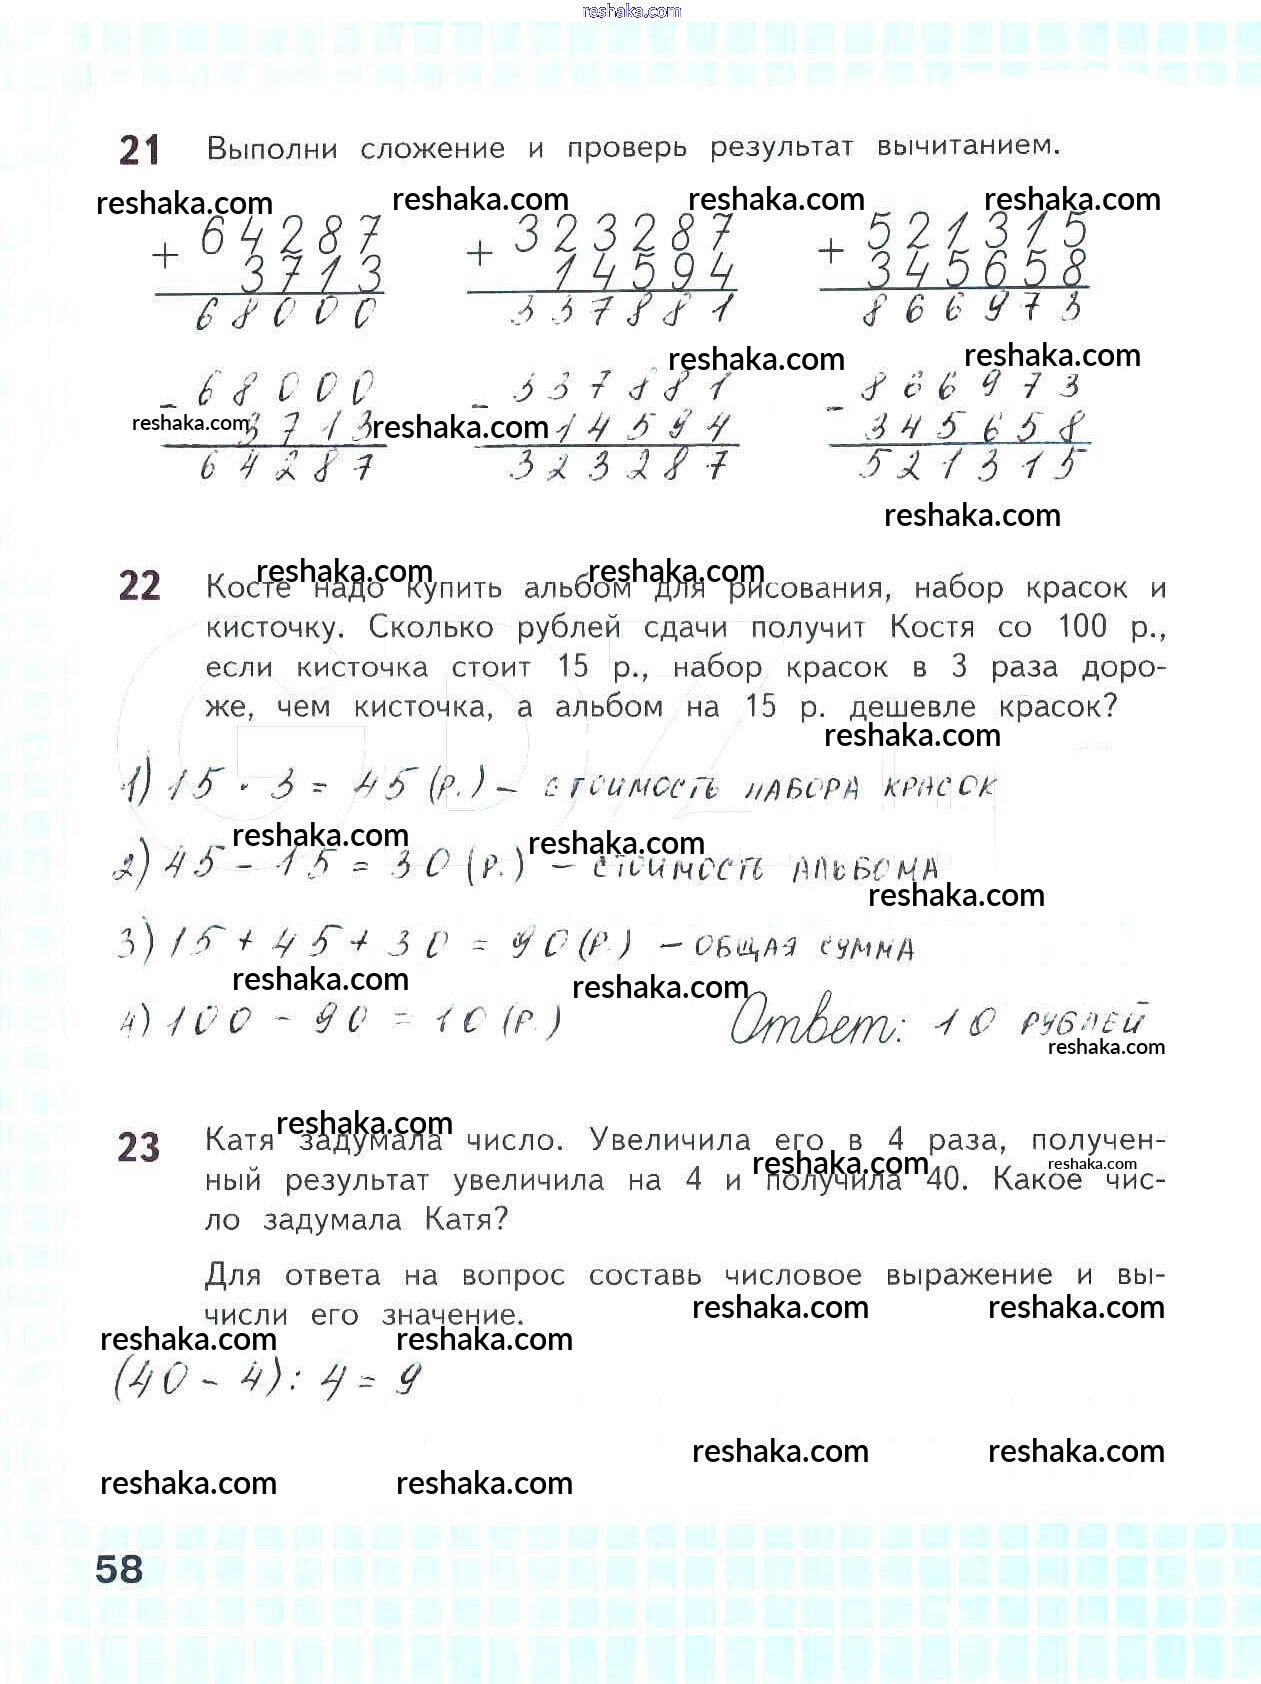 reshaka.com
21 Выполни сложение и проверь результат вычитанием.
reshaka.com reshaka.com reshaka.com reshaka.com
+ 64287 + 323287 + 521315
3713 14594 345658
68000 337881 866973
reshaka.com reshaka.com
- 68000 - 337881 - 866973
reshaka.com 3713 reshaka.com 14594 345658
64287 323287 521315
reshaka.com
reshaka.com reshaka.com
22 Косте надо купить альбом для рисования, набор красок и
кисточку. Сколько рублей сдачи получит Костя со 100 р.,
если кисточка стоит 15 р., набор красок в 3 раза доро-
же, чем кисточка, а альбом на 15 р. дешевле красок?
reshaka.com
1) 15 · 3 = 45 (р.) – стоимость набора красок
reshaka.com reshaka.com
2) 45 – 15 = 30 (р.) – стоимость альбома
reshaka.com
3) 15 + 45 + 30 = 90 (р.) – общая сумма
reshaka.com reshaka.com
4) 100 – 90 = 10 (р.) Ответ: 10 рублей
reshaka.com
reshaka.com
23 Катя задумала число. Увеличила его в 4 раза, получен-
reshaka.com reshaka.com
ный результат увеличила на 4 и получила 40. Какое чис-
ло задумала Катя?
Для ответа на вопрос составь числовое выражение и вы-
числи его значение.
reshaka.com reshaka.com
reshaka.com reshaka.com
(40 – 4) : 4 = 9
reshaka.com reshaka.com
reshaka.com reshaka.com
58